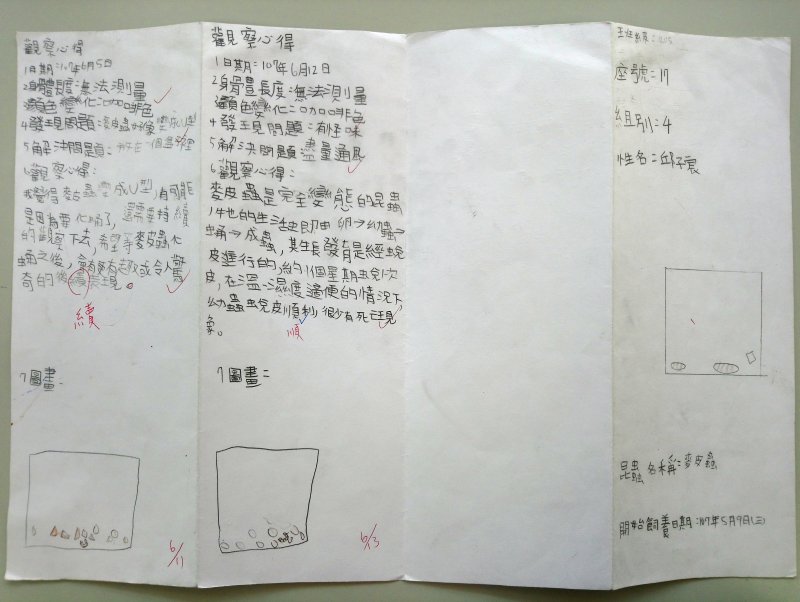 觀察心得
1日期：107年6月5日
2身體長度：無法測量
3顏色變化：咖啡色
4發現問題：麥皮蟲好像變成U型
5解決問題：
6觀察心得：
我覺得麥皮蟲變成U型，有可能
是因為要化蛹了，還需要持續
的觀察下去，希望等麥皮蟲化
蛹之後，會有更有趣或令人驚
奇的後續發現。
續
7圖畫：
6/11
觀察心得
1日期：107年6月12日
2身體長度：無法測量
3顏色變化：咖啡色
4發現問題：有怪味
5解決問題：盡量通風
6觀察心得：
麥皮蟲是完全變態的昆蟲
，牠的生活史即由卵→幼蟲→
蛹→成蟲，其生長發育是經蛻
皮進行的，約1個星期蛻1次
皮，在溫、濕度適便的情況下，
幼蟲蛻皮順利，很少有死亡現
象。
順
7圖畫：
6/13
班級：205
座號：17
組別：4
姓名：邱子宸
昆蟲名稱：麥皮蟲
開始飼養日期：107年5月9日(三)